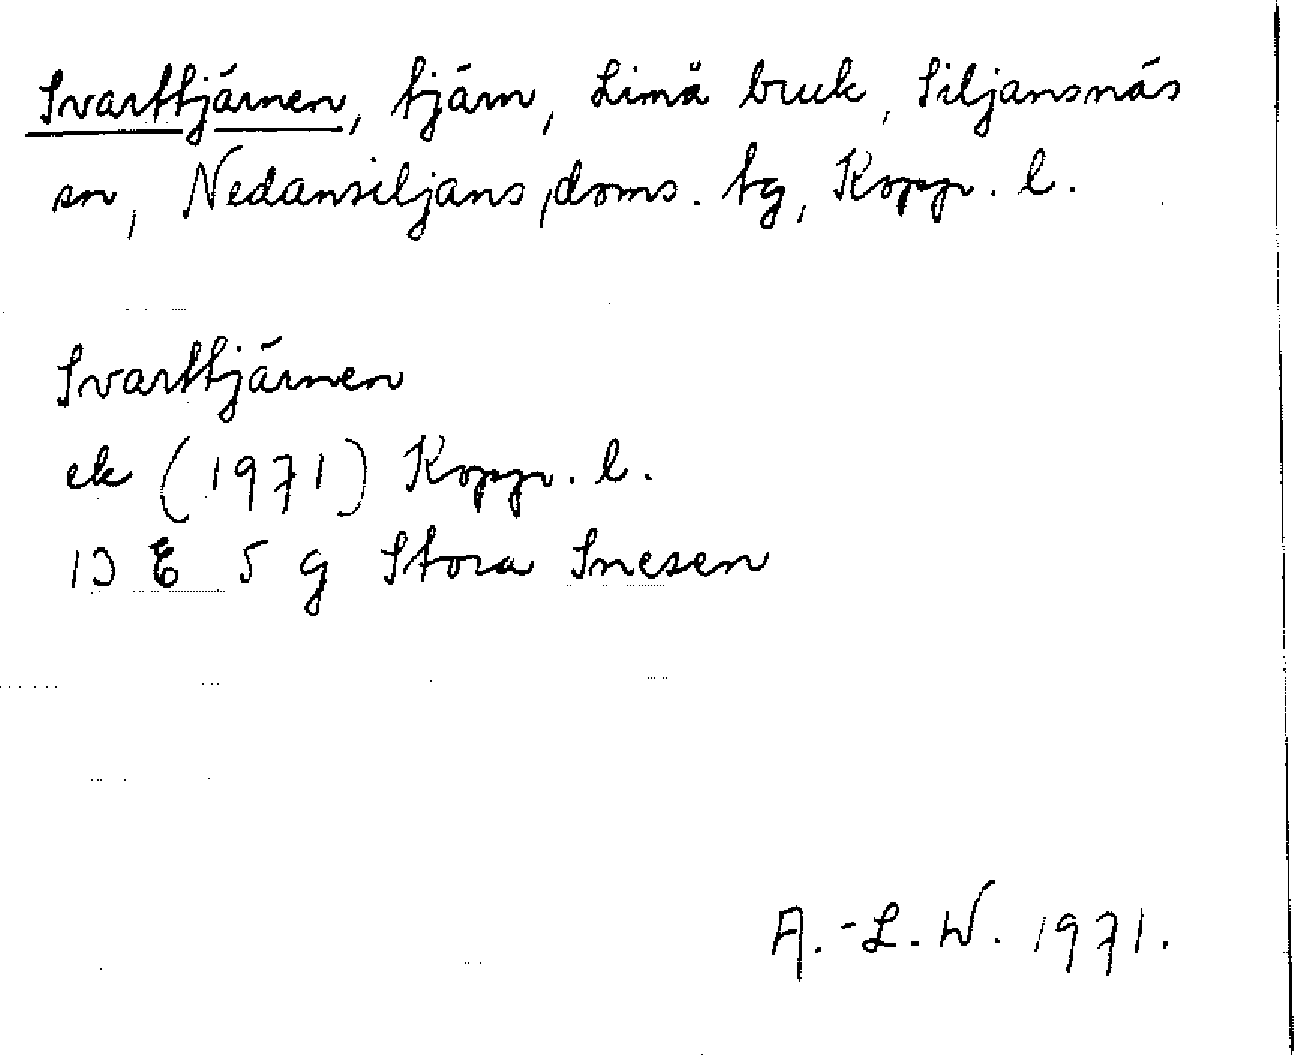 Svarttjärnen, tjärn, Limå bruk, Siljansnäs
sn, Nedansiljans doms. tg, Kopp. l.
Svarttjärnen
ek (1971) Kopp. l.
13 E 5 g Stora Snesen
A.-L. W. 1971.